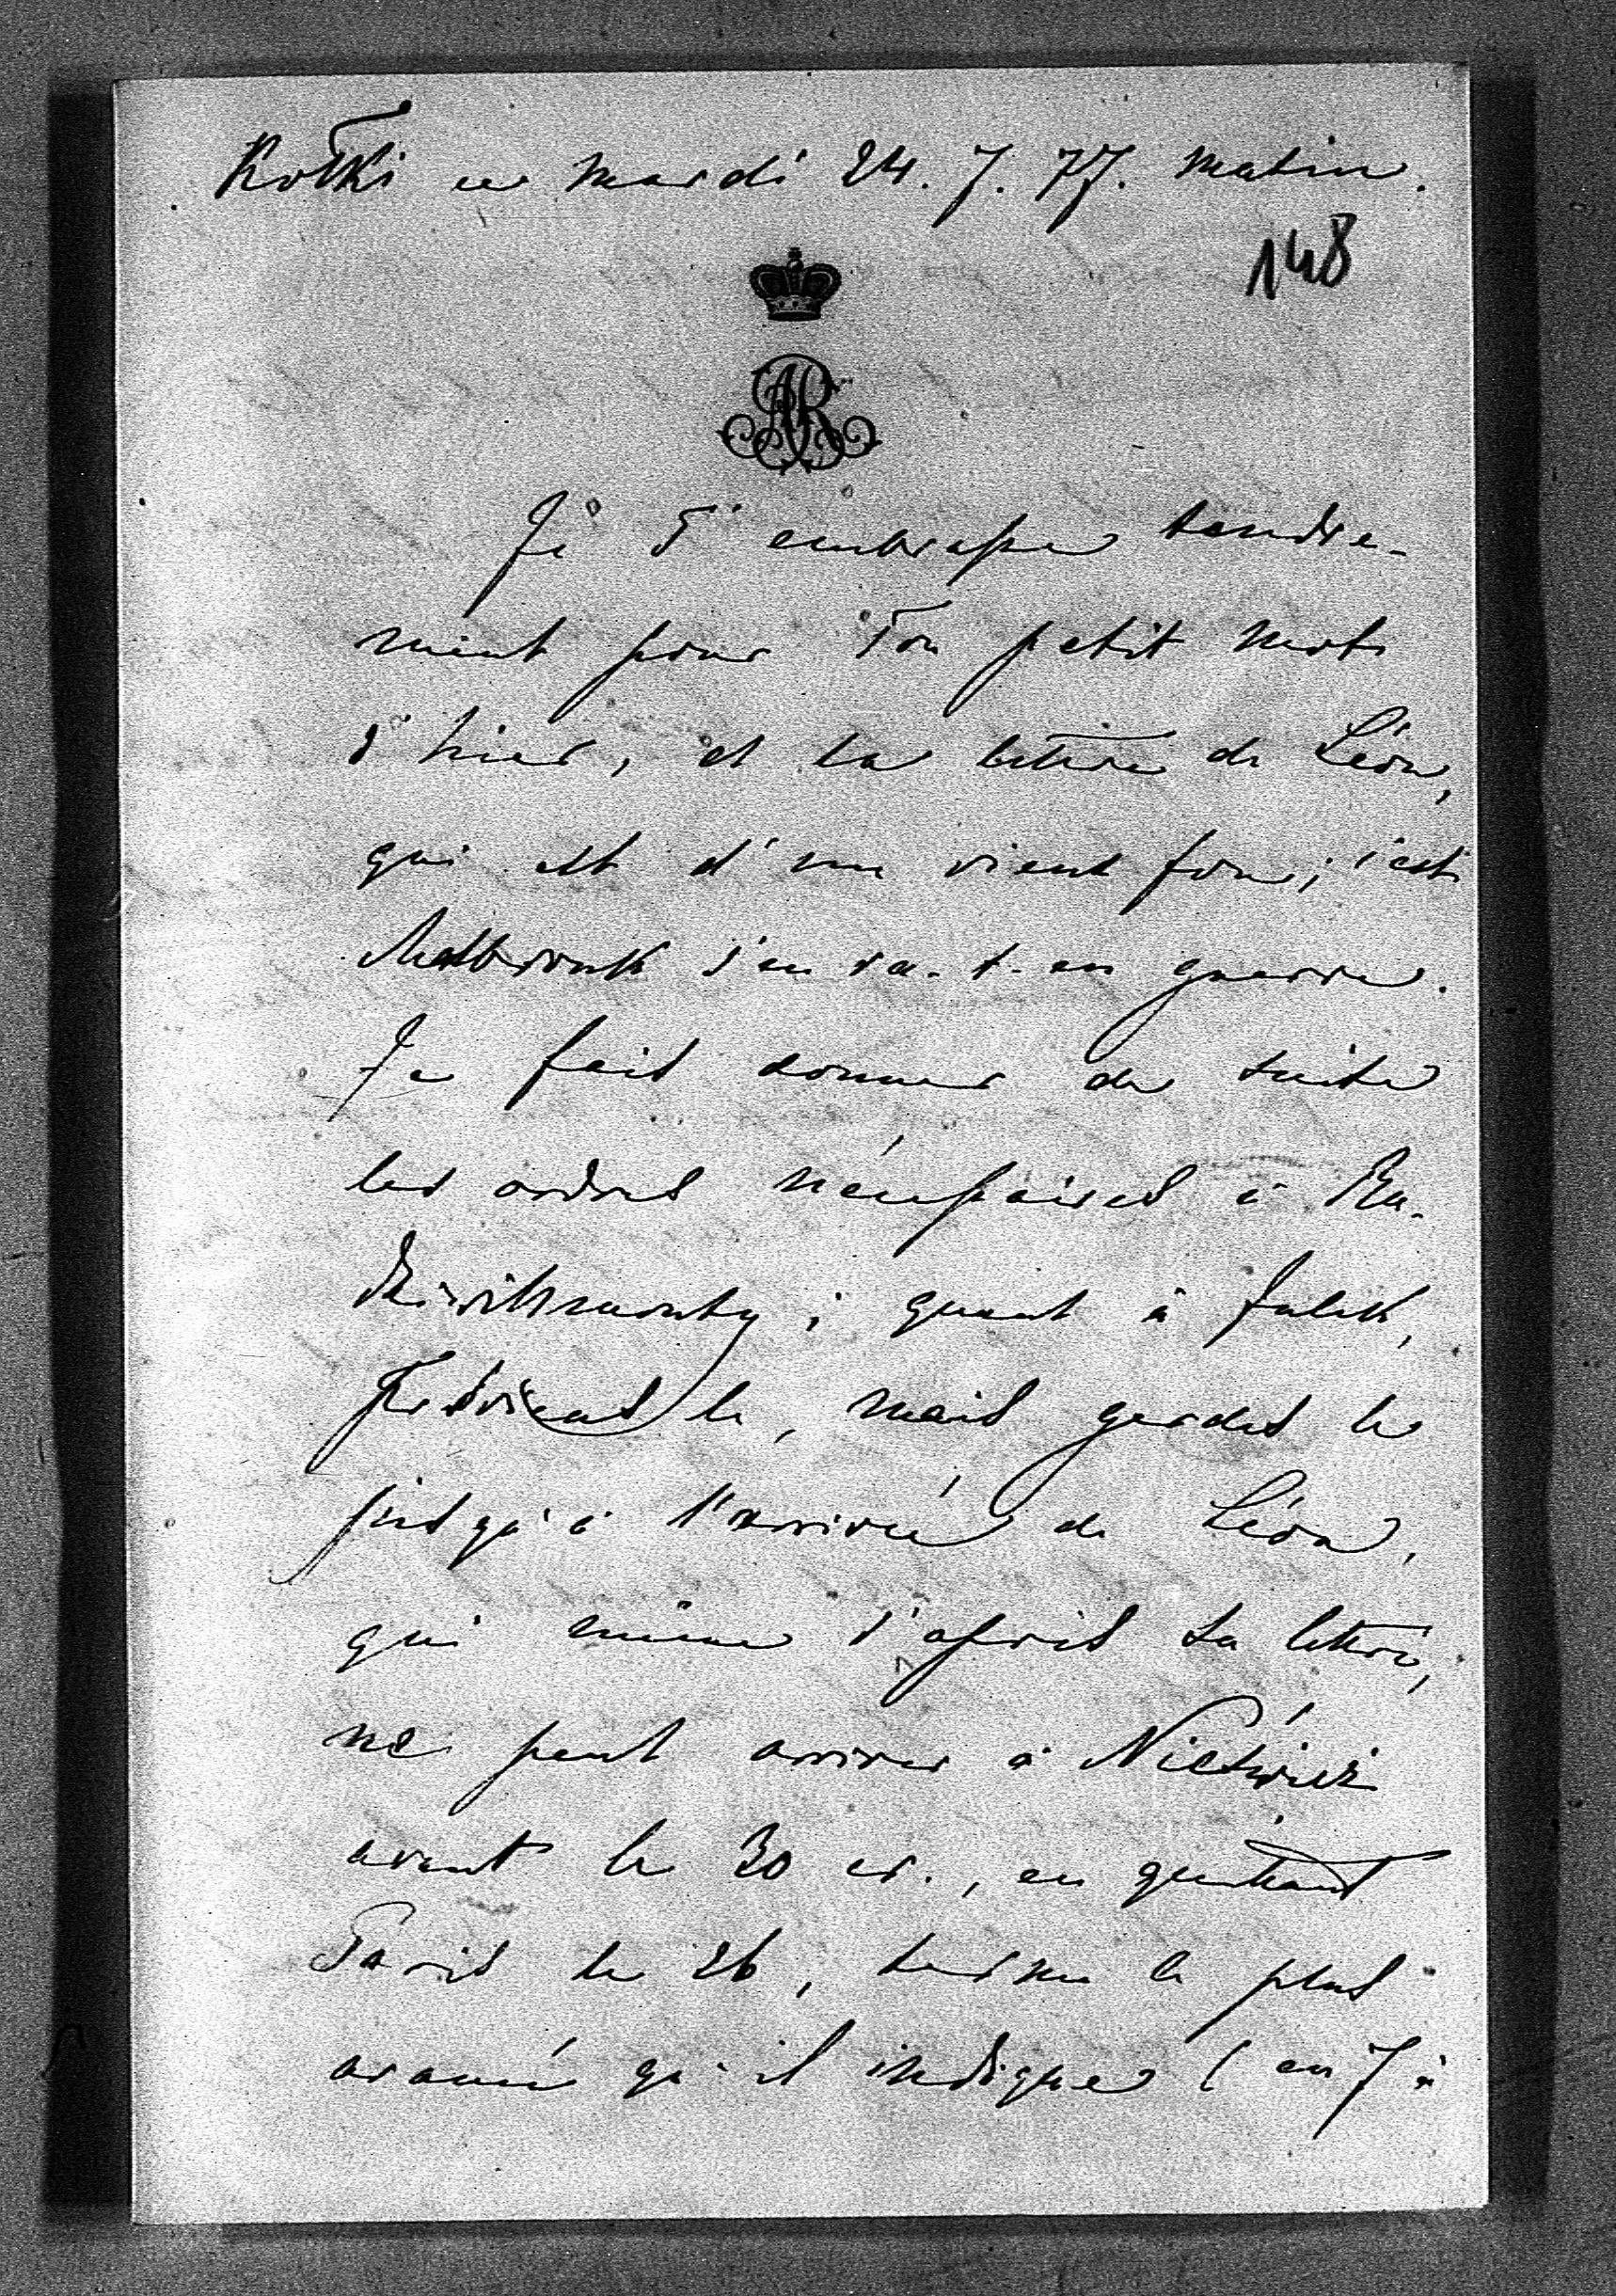 Kołki ce mardi 24. 7. 77. matin.
148
AR
Je T'embrasse tendre-
ment pour Ton petit mot
d'hier, et la lettre de Léon,
qui est d'un vieux fou; c'est
Malbrouk s'en va-t-en guerre.
Je fais donner de suite
les ordres nécessaires à Ra-
dziwiłłmonty; quant à Julek,
préviens le, mais gardes le
jusqu'à l'arrivée de Léon,
qui même d'après sa lettre,
ne peut arriver à Nieśwież
avant le 30 cr., en quittant
Paris le 26, terme le plus
avancé qu'il indique (en 7 à